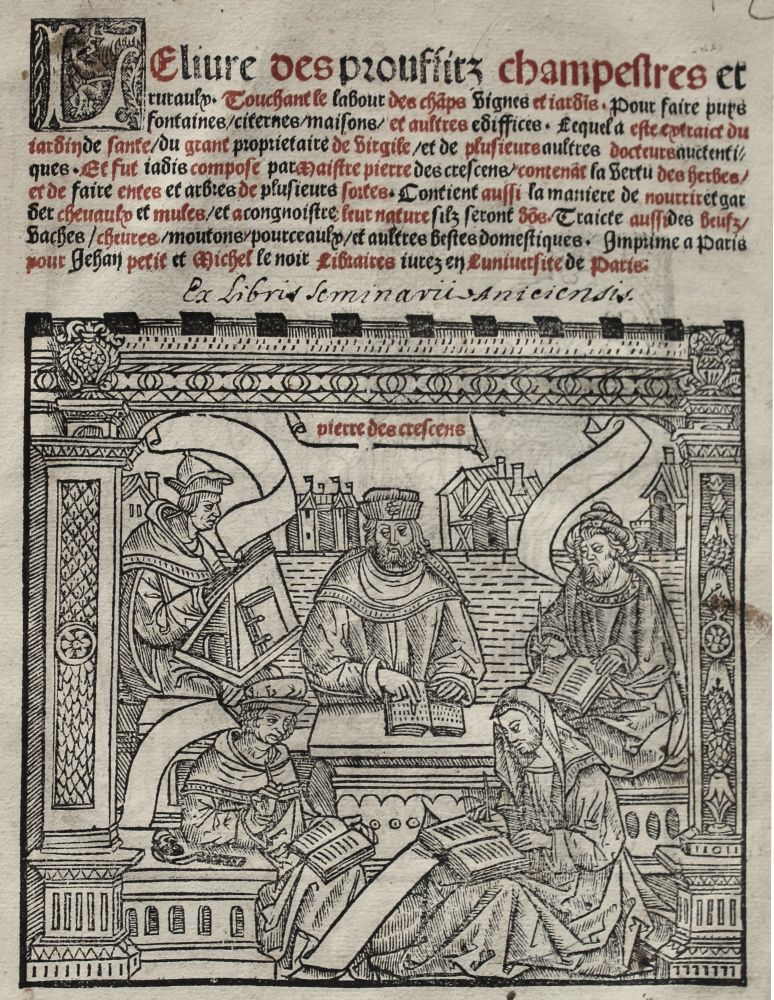 Le liure des prouffitz champestres et
ruraulx. Touchant le labour des chãps vignes et iardĩs. Pour faire puys
fontaines/citernes/maisons/et aultres ediffices. Lequel a este extraict du
iardin de sante/du grant proprietaire de Virgile/et de plusieurs aultres docteurs auctenti/
ques. Et fut iadis compose par Maistre pierre des crescens/contenãt la vertu des herbes/
et de faire entes et arbres de plusieurs sortes. Contient aussi la maniere de nourrir et gar
der cheuaulx et mules/et a congnoistre leur nature silz seront bõs/Traicte aussi des beufz/
vaches/cheures/moutons/pourceaulx/et aultres bestes domestiques. Imprime a Paris
pour Jehan petit et Michel le noir Libraires iurez en Luniuersite de Paris:
Ex Libris Seminarii Aniciensis.
pierre des crescens